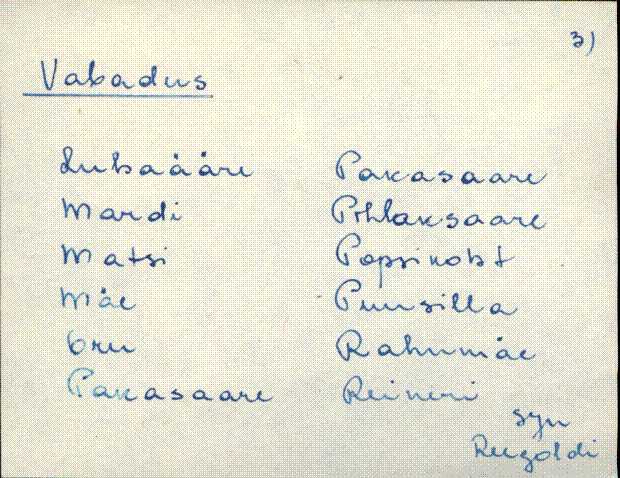 3)
Vabadus
Lubaääre
Mardi
Matsi
Mäe
Oru
Pakasaare
Pakasaare
Pihlaksaare
Popsikobt
Puusilla
Rahumäe
Reineri
syn